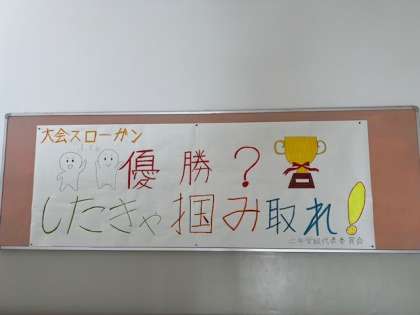 大会スローガン
優勝?
したきゃ掴み取れ!
二年学級代表委員会